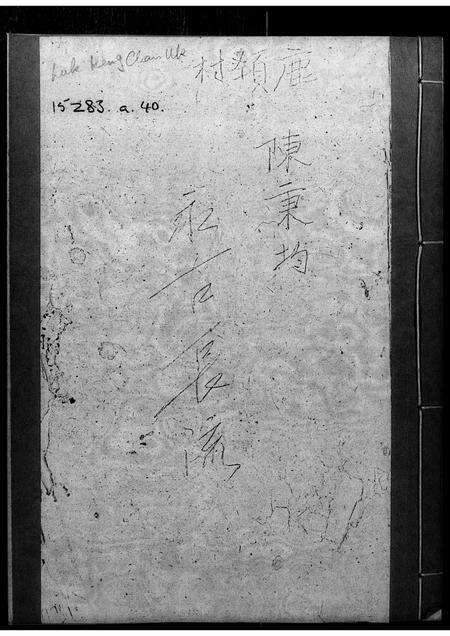 Luk Keng Chan Uk
15283. a. 40.
鹿頸村
陳秉均
永長流